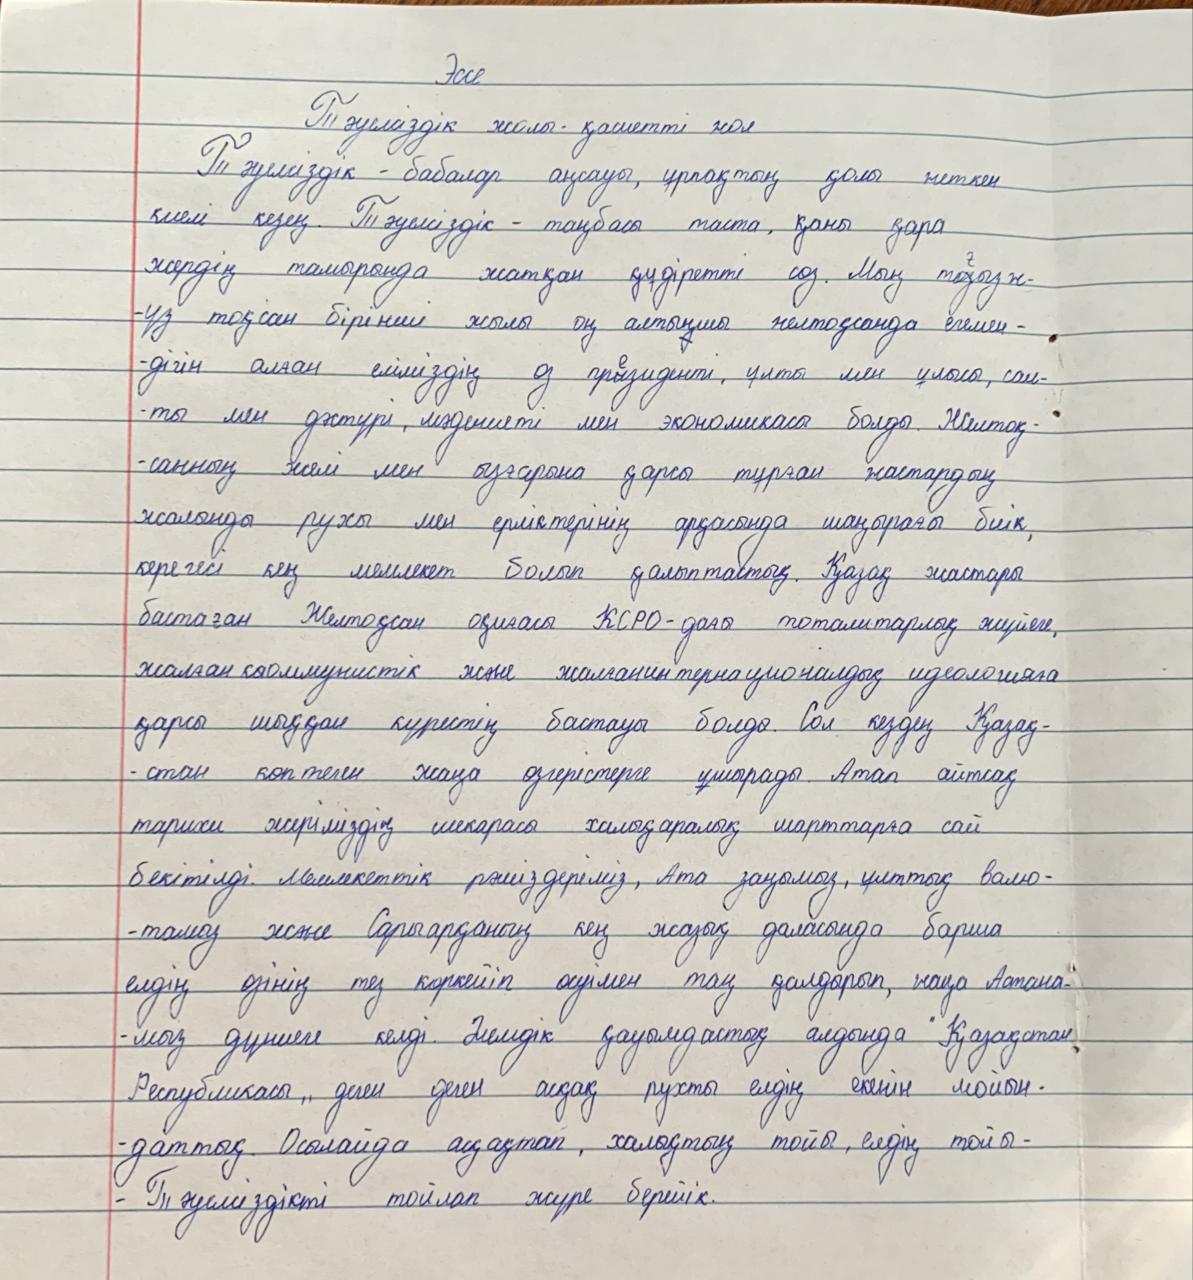 Эссе
Тәуелсіздік жолы - қасиетті жол
Тәуелсіздік - бабалар аңсауы, ұрпақтың қолы жеткен
киелі кезең. Тәуелсіздік - таңбасы таста, қаны қара
жердің тамырында жатқан құдіретті сөз. Мың тоғызж-
-үз тоқсан бірінші жылы он алтыншы желтоқсанда егемен-
-дігін алған еліміздің өз президенті, ұлты мен ұлысы, сал-
-ты мен дәстүрі, мәдениеті мен экономикасы болды. Желтоқ-
-санның желі мен ызғарына қарсы тұрған жастардың
жалынды рухы мен ерліктерінің арқасында шаңырағы биік,
керегесі кең мемлекет болып қалыптастық. Қазақ жастары
бастаған Желтоқсан оқиғасы КСРО-дағы тоталитарлық жүйеге,
жалған коммунистік және жалғанинтернационалдық идеологияға
қарсы шыққан күрестің бастауы болды. Сол кезден Қазақ-
-стан көптеген жаңа өзгерістерге ұшырады. Атап айтсақ
тарихи жеріміздің шекарасы халықаралық шарттарға сай
бекітілді. Мемлекеттік рәміздеріміз, Ата заңымыз, ұлттық валю-
-тамыз және Сарыарқаның кең жазық даласында барша
елдің өзінің тез көркейіп өсуімен таң қалдырып, жаңа Астана-
-мыз дүниеге келді. Әлемдік қауымдастық алдында "Қазақстан
Республикасы" деген деген асқақ рухты елдің екенін мойын-
-даттық. Осылайда асқақтап, халықтың тойы, елдің тойы -
- Тәуелсіздікті тойлап жүре берейік.